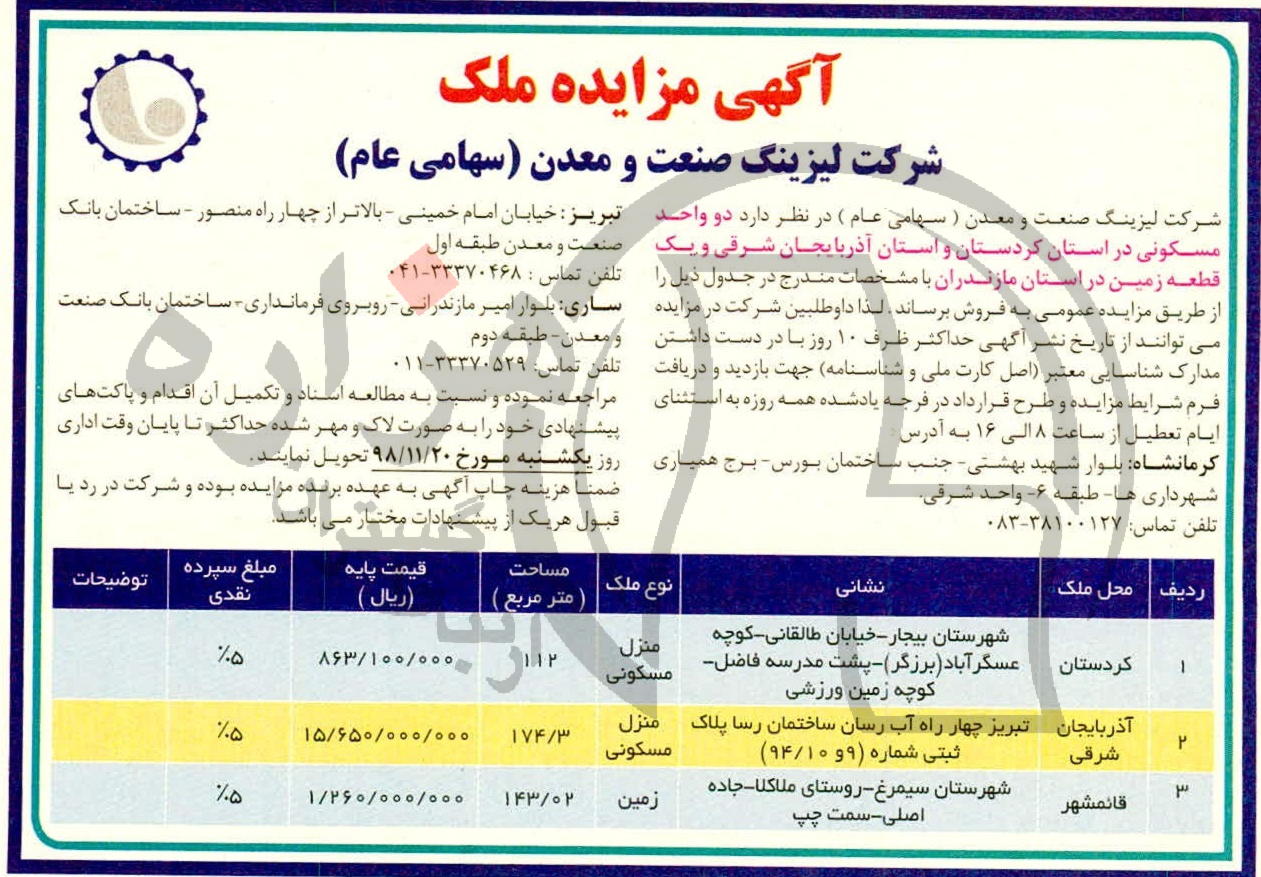 آگهی مزایده ملک
شرکت لیزینگ صنعت و معدن (سهامی عام)
شرکت لیزینگ صنعت و معدن ( سهامی عام ) در نظر دارد دو واحد
مسکونی در استان کردستان و استان آذربایجان شرقی و یک
قطعه زمین در استان مازندران با مشخصات مندرج در جدول ذیل را
از طریق مزایده عمومی به فروش برساند. لذا داوطلبین شرکت در مزایده
می توانند از تاریخ نشر آگهی حداکثر ظرف ۱۰ روز با در دست داشتن
مدارک شناسایی معتبر (اصل کارت ملی و شناسنامه) جهت بازدید و دریافت
فرم شرایط مزایده و طرح قرارداد در فرجه یادشده همه روزه به استثنای
ایام تعطیل از ساعت ۸ الی ۱۶ به آدرس:
کرمانشاه: بلوار شهید بهشتی- جنب ساختمان بورس- برج همیاری
شهرداری ها- طبقه ۶- واحد شرقی.
تلفن تماس: ۳۸۱۰۰۱۲۷-۰۸۳
تبریز: خیابان امام خمینی - بالاتر از چهار راه منصور - ساختمان بانک
صنعت و معدن طبقه اول
تلفن تماس : ۳۳۳۷۰۴۶۸-۰۴۱
ساری: بلوار امیر مازندرانی - روبروی فرمانداری- ساختمان بانک صنعت
و معدن- طبقه دوم
تلفن تماس: ۳۳۳۷۰۵۲۹-۰۱۱
مراجعه نموده و نسبت به مطالعه اسناد و تکمیل آن اقدام و پاکت‌های
پیشنهادی خود را به صورت لاک و مهر شده حداکثر تا پایان وقت اداری
روز یکشنبه مورخ ۹۸/۱۱/۲۰ تحویل نمایند.
ضمنا هزینه چاپ آگهی به عهده برنده مزایده بوده و شرکت در رد یا
قبول هریک از پیشنهادات مختار می باشد.
ردیف محل ملک نشانی نوع ملک مساحت ( متر مربع ) قیمت پایه (ریال ) مبلغ سپرده نقدی توضیحات
۱ کردستان شهرستان بیجار-خیابان طالقانی-کوچه
عسگرآباد(برزگر)-پشت مدرسه فاضل-
کوچه زمین ورزشی
منزل مسکونی ۱۱۲ ۸۶۳/۱۰۰/۰۰۰ ۵٪
۲ آذربایجان شرقی تبریز چهار راه آب رسان ساختمان رسا پلاک
ثبتی شماره (۹و ۹۴/۱۰)
منزل مسکونی ۱۷۴/۳ ۱۵/۶۵۰/۰۰۰/۰۰۰ ۵٪
۳ قائمشهر شهرستان سیمرغ-روستای ملاکلا-جاده
اصلی-سمت چپ
زمین ۱۴۳/۰۲ ۱/۲۶۰/۰۰۰/۰۰۰ ۵٪
هزاره